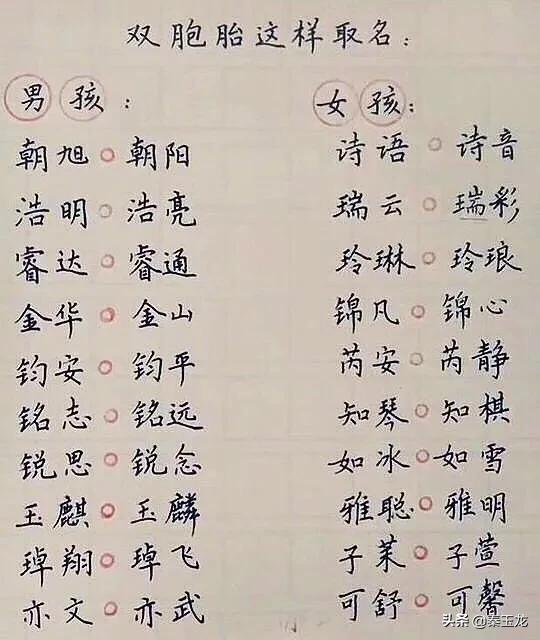 双胞胎这样取名：
男孩：
朝旭○朝阳
浩明○浩亮
睿达○睿通
金华○金山
钧安○钧平
铭志○铭远
锐思○锐念
玉麒○玉麟
琸翔○琸飞
亦文○亦武
女孩：
诗语○诗音
瑞云○瑞彩
玲琳○玲琅
锦凡○锦心
芮安○芮静
知琴○知棋
如冰○如雪
雅聪○雅明
子茉○子萱
可舒○可馨
头条 @秦玉龙